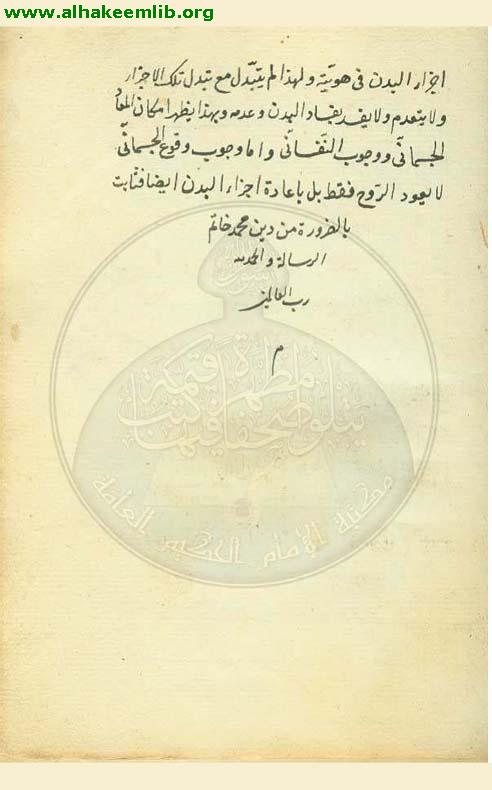 www.alhakeemlib.org
اجزاء البدن فى هويته ولهذا لم يتبدل مع تبدل تلك الاجزاء
ولا ينعدم ولا يفسد بفساد البدن وعدمه وبهذا يظهر امكان المعاد
الجسمانى ووجوب النفسانى واما وجوب وقوع الجسمانى
لا بعود الروح فقط بل باعادة اجزاء البدن ايضا فثابت
بالضرورة من دين محمد خاتم
الرسالة والحمد لله
رب العالمين
م
رسول من الله
يتلو صحفا مطهرة فيها كتب قيمة
مكتبة الإمام الحكيم العامة